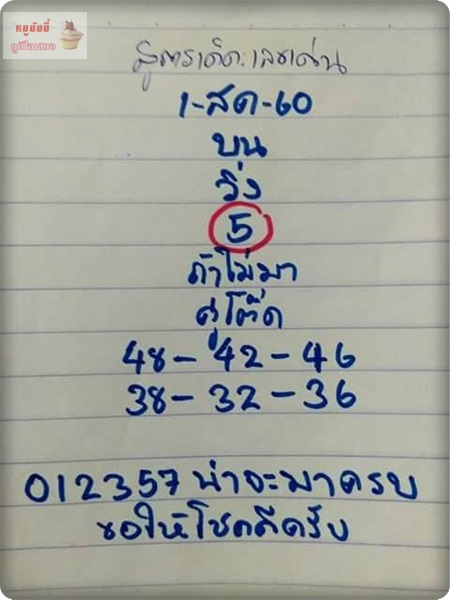 หมูมัมมี่
สูตรเด็ด.เลขเด่น
1-สค-60
บน
วิ่ง
5
ถ้าไม่มา
คู่โต๊ด
48-42-46
38-32-36
012357 น่าจะมาครบ
ขอให้โชคดีครับ